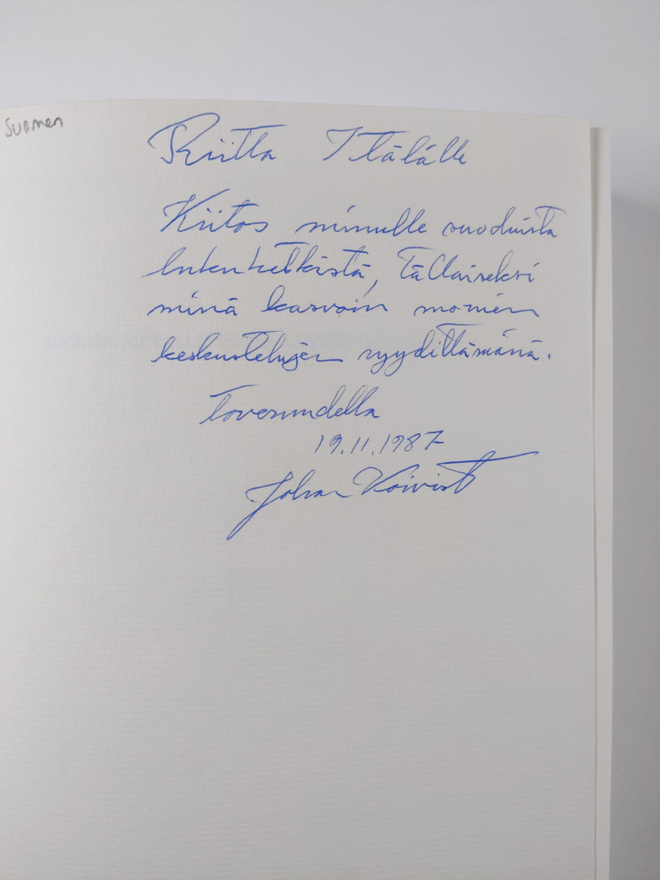 Suomen
Riitta Itälälle
Kiitos minulle suoduista
lukuhetkistä, tällaiseksi
minä kasvoin monien
keskustelujen ryydittämänä.
Toveruudella
19.11.1987
Johan Koivist